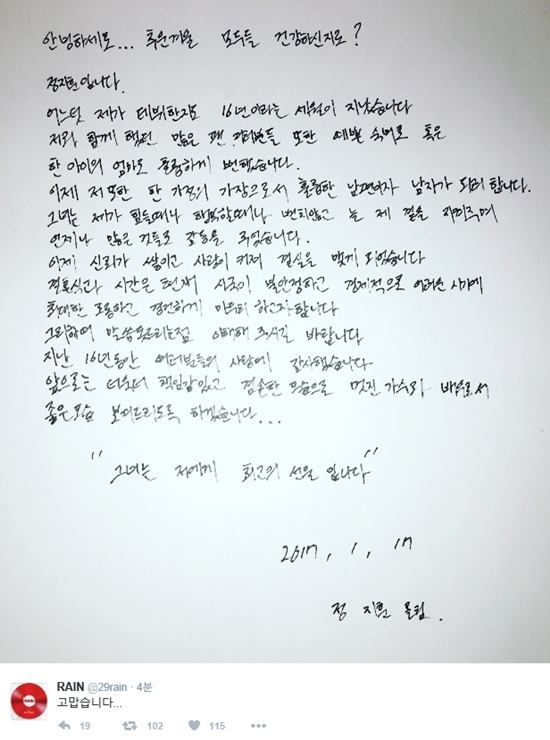 안녕하세요... 추운겨울 모두들 건강하신지요?
정지훈입니다.
어느덧 제가 데뷔한지도 16년이라는 세월이 지났습니다
저와 함께 했던 많은 팬 여러분들 또한 예쁜 숙녀로 혹은
한 아이의 엄마로 훌륭하게 변했습니다.
이제 저 또한 한 가정의 가장으로서 훌륭한 남편이자 남자가 되려 합니다.
그녀는 제가 힘들때나 행복할때나 변치않고 늘 제 곁을 지켜주며
언제나 많은 것들로 감동을 주었습니다.
이제 신뢰가 쌓이고 사랑이 커져 결실을 맺게 되었습니다
결혼식과 시간은 현재 시국이 불안정하고 경제적으로 어려운 시기에
최대한 조용하고 경건하게 마무리 하고자합니다
그리하여 말씀못드리는점 이해해 주시길 바랍니다
지난 16년동안 여러분들의 사랑에 감사했습니다
앞으로는 더욱더 책임감있고 겸손한 모습으로 멋진 가수와 배우로서
좋은모습 보여드리도록 하겠습니다...
" 그녀는 저에게 최고의 선물 입니다 "
2017. 1. 17
정 지훈 올림.
RAIN @29rain · 4분
RAIN
고맙습니다...
19 102 115